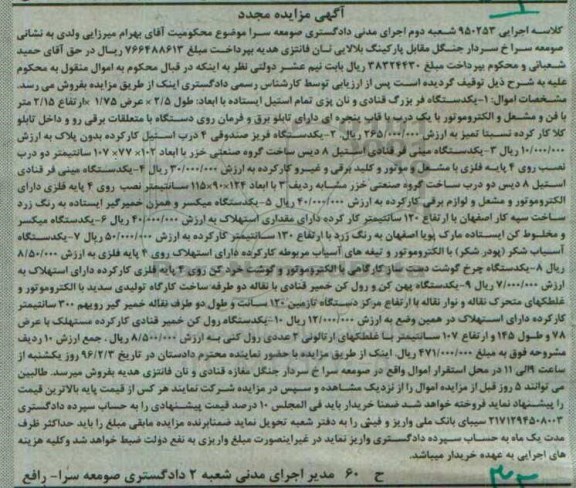 آگهی مزایده مجدد
کلاسه اجرایی ۹۵۰۲۵۳ شعبه دوم اجرای مدنی دادگستری صومعه سرا موضوع محکومیت آقای بهرام میرزایی ولدی به نشانی
صومعه سرا خ سردار جنگل مقابل پارکینگ بلالایی نان فانتزی هدیه بپرداخت مبلغ ۷۶۶۴۸۸۶۱۳ ریال در حق آقای حمید
شعبانی و محکوم بپرداخت مبلغ ۳۸۳۲۴۴۳۰ ریال بابت نیم عشر دولتی نظر به اینکه در قبال محکوم به اموال منقول به محکوم
علیه به شرح ذیل توقیف گردیده است پس از ارزیابی توسط کارشناس رسمی دادگستری اینک از طریق مزایده بفروش می رسد.
مشخصات اموال: ۱-یکدستگاه فر بزرگ قنادی و نان پزی تمام استیل ایستاده با ابعاد: طول ۲/۵ × عرض ۱/۷۵ ×ارتفاع ۲/۱۵ متر
با فن و مشعل و الکتروموتور با یک درب با قاب پنجره ای دارای تابلو برق و فرمان روی دستگاه با متعلقات برقی رو و داخل تابلو
کلا کار کرده نسبتا تمیز به ارزش ۲۶۵/۰۰۰/۰۰۰ ریال. ۲-یکدستگاه فریز صندوقی ۴ درب استیل کارکرده بدون پلاک به ارزش
۱۰/۰۰۰/۰۰۰ ریال ۳-یکدستگاه مینی فر قنادی استیل ۸ دیس ساخت گروه صنعتی خزر با ابعاد ۱۰۲× ۷۷× ۱۰۷ سانتیمتر دو درب
نصب روی ۴ پایه فلزی با مشعل و موتور و کلید برقی و غیرو کارکرده به ارزش ۳۰/۰۰۰/۰۰۰ ریال ۴-یکدستگاه مینی فر قنادی
استیل ۸ دیس دو درب ساخت گروه صنعتی خزر مشابه ردیف ۳ با ابعاد ۱۲۴×۹۰×۱۱۵ سانتیمتر نصب روی ۴ پایه فلزی دارای
الکتروموتور و مشعل و لوازم برقی کارکرده به ارزش ۴۰/۰۰۰/۰۰۰ ریال ۵-یکدستگاه میکسر و همزن خمیرگیر ایستاده به رنگ زرد
ساخت سپه کار اصفهان با ارتفاع ۱۲۰ سانتیمتر کار کرده دارای مقداری استهلاک به ارزش ۴۰/۰۰۰/۰۰۰ ریال ۶-یکدستگاه میکسر
و مخلوط کن ایستاده مارک پویا اصفهان به رنگ زرد با ارتفاع ۱۳۰ سانتیمتر کارکرده به ارزش ۵۰/۰۰۰/۰۰۰ ریال ۷-یکدستگاه
آسیاب شکر (پودر شکر) با الکتروموتور و تیغه های آسیاب مربوطه کارکرده دارای استهلاک روی ۴ پایه فلزی به ارزش ۸/۵۰/۰۰۰
ریال ۸-یکدستگاه چرخ گوشت دست ساز کارگاهی با الکتروموتور و گوشت خرد کن روی ۴ پایه فلزی کارکرده دارای استهلاک به
ارزش ۷/۰۰۰/۰۰۰ ریال ۹-یکدستگاه پهن کن و رول کن خمیر قنادی با نقاله دو طرفه ساخت کارگاه تولیدی سدید با الکتروموتور و
غلطکهای متحرک نقاله و نوار نقاله با ارتفاع مرکز دستگاه تازمین ۱۲۰ سانت و طول دو طرف نقاله خمیر گیر رویهم ۳۰۰ سانتیمتر
کارکرده دارای استهلاک در همین وضع به ارزش ۱۲/۰۰۰/۰۰۰ ریال ۱۰-یکدستگاه رول کن خمیر قنادی کارکرده مستهلک با عرض
۷۸ و طول ۱۴۵ و ارتفاع ۱۰۷ سانتیمتر با غلطکهای ارتالونی ۲ عددی رول کنی به ارزش ۸/۵۰۰/۰۰۰ ریال . جمع ارزش ۱۰ ردیف
مشروحه فوق به مبلغ ۴۷۱/۰۰۰/۰۰۰ ریال. اینک از طریق مزایده با حضور نماینده محترم دادستان در تاریخ ۹۶/۲/۳ روز یکشنبه از
ساعت ۹الی ۱۱ در محل استقرار اموال واقع در صومعه سرا خ سردار جنگل مغازه قنادی و نان فانتزی هدیه بفروش میرسد. طالبین
می توانند ۵ روز قبل از مزایده اموال را از نزدیک مشاهده و سپس در مزایده شرکت نمایند هر کس از قیمت پایه بالاترین قیمت
را پیشنهاد نماید فروخته خواهد شد. ضمنا خریدار باید فی المجلس ۱۰ درصد قیمت پیشنهادی را به حساب سپرده دادگستری
۲۱۷۱۲۹۴۵۰۸۰۰۳ سیبای بانک ملی واریز و فیش را به دفتر شعبه تحویل نماید ضمنابرنده مزایده مابقی مبلغ را باید حداکثر ظرف
مدت یک ماه به حساب سپرده دادگستری واریز نماید در غیراینصورت مبلغ واریزی به نفع دولت ضبط خواهد شد وکلیه هزینه
های اجرایی به عهده خریدار میباشد.
ح ۶۰ مدیر اجرای مدنی شعبه ۲ دادگستری صومعه سرا- رافع